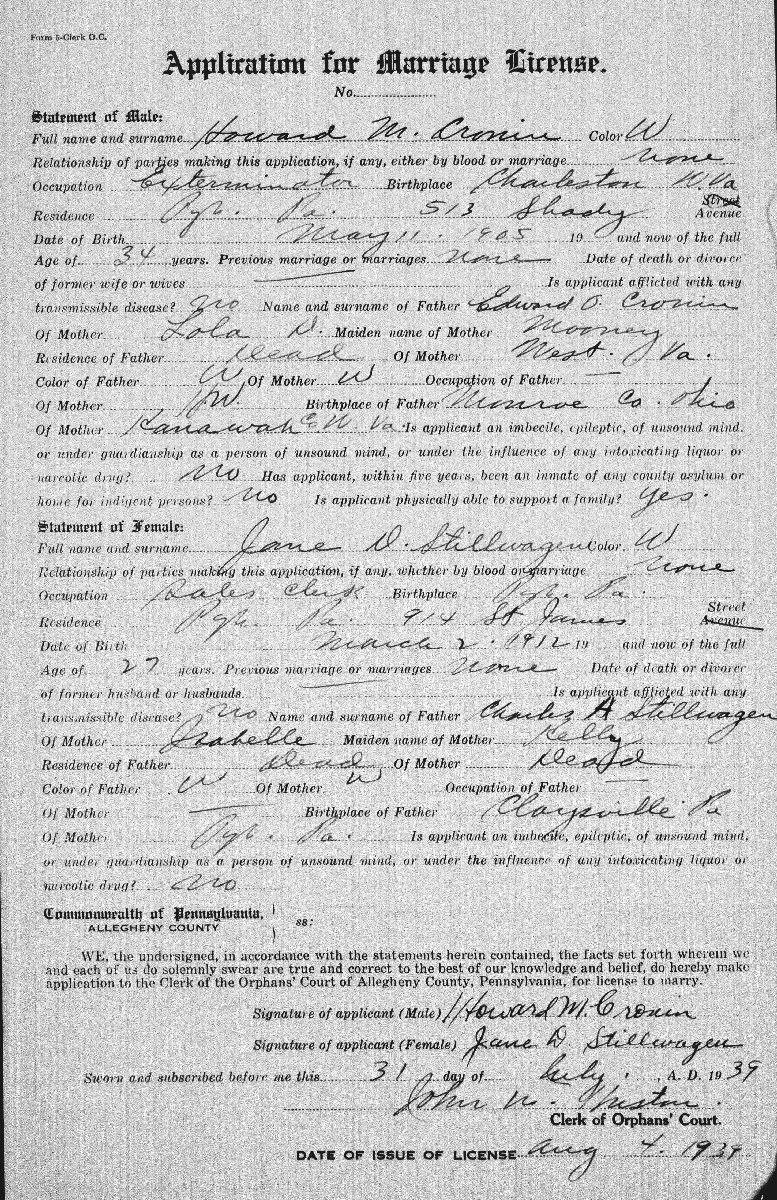 Form 5-Clerk O.C.
Application for Marriage License.
No.
Statement of Male:
Full name and surname Howard M. Cronin Color W
Relationship of parties making this application, if any, either by blood or marriage none
Occupation Exterminator Birthplace Charleston W. Va
Street
Residence Pgh. Pa. 513 Shady Avenue
Date of Birth May 11. 1905 19 and now of the full
Age of 34 years. Previous marriage or marriages none Date of death or divorce
of former wife or wives Is applicant afflicted with any
transmissible disease? no Name and surname of Father Edward O. Cronin
Of Mother Lola D. Maiden name of Mother Mooney
Residence of Father Dead Of Mother West. Va.
Color of Father W Of Mother W Occupation of Father —
Of Mother HW. Birthplace of Father Monroe Co. Ohio
Of Mother Kanawah C. W. Va. Is applicant an imbecile, epileptic, of unsound mind,
or under guardianship as a person of unsound mind, or under the influence of any intoxicating liquor or
narcotic drug? no Has applicant, within five years, been an inmate of any county asylum or
home for indigent persons? no Is applicant physically able to support a family? yes.
Statement of Female:
Full name and surname Jane D. Stillwagen Color W
Relationship of parties making this application, if any, whether by blood or marriage none
Occupation Sales Clerk Birthplace Pgh. Pa.
Street
Residence Pgh. Pa. 914 St. James Avenue
Date of Birth March 2. 1912 19 and now of the full
Age of 27 years. Previous marriage or marriages none Date of death or divorce
of former husband or husbands Is applicant afflicted with any
transmissible disease? no Name and surname of Father Charles A Stillwagen
Of Mother Isabelle Maiden name of Mother Kelly
Residence of Father Dead Of Mother Dead
Color of Father W Of Mother W Occupation of Father —
Of Mother — Birthplace of Father Claysville Pa
Of Mother Pgh. Pa. Is applicant an imbecile, epileptic, of unsound mind,
or under guardianship as a person of unsound mind, or under the influence of any intoxicating liquor or
narcotic drug? no
Commonwealth of Pennsylvania,
ALLEGHENY COUNTY ss:
WE, the undersigned, in accordance with the statements herein contained, the facts set forth wherein we
and each of us do solemnly swear are true and correct to the best of our knowledge and belief, do hereby make
application to the Clerk of the Orphans' Court of Allegheny County, Pennsylvania, for license to marry.
Signature of applicant (Male) Howard M. Cronin
Signature of applicant (Female) Jane D Stillwagen
Sworn and subscribed before me this 31 day of July, A. D. 1939
John
Clerk of Orphans' Court.
DATE OF ISSUE OF LICENSE Aug 4. 1939